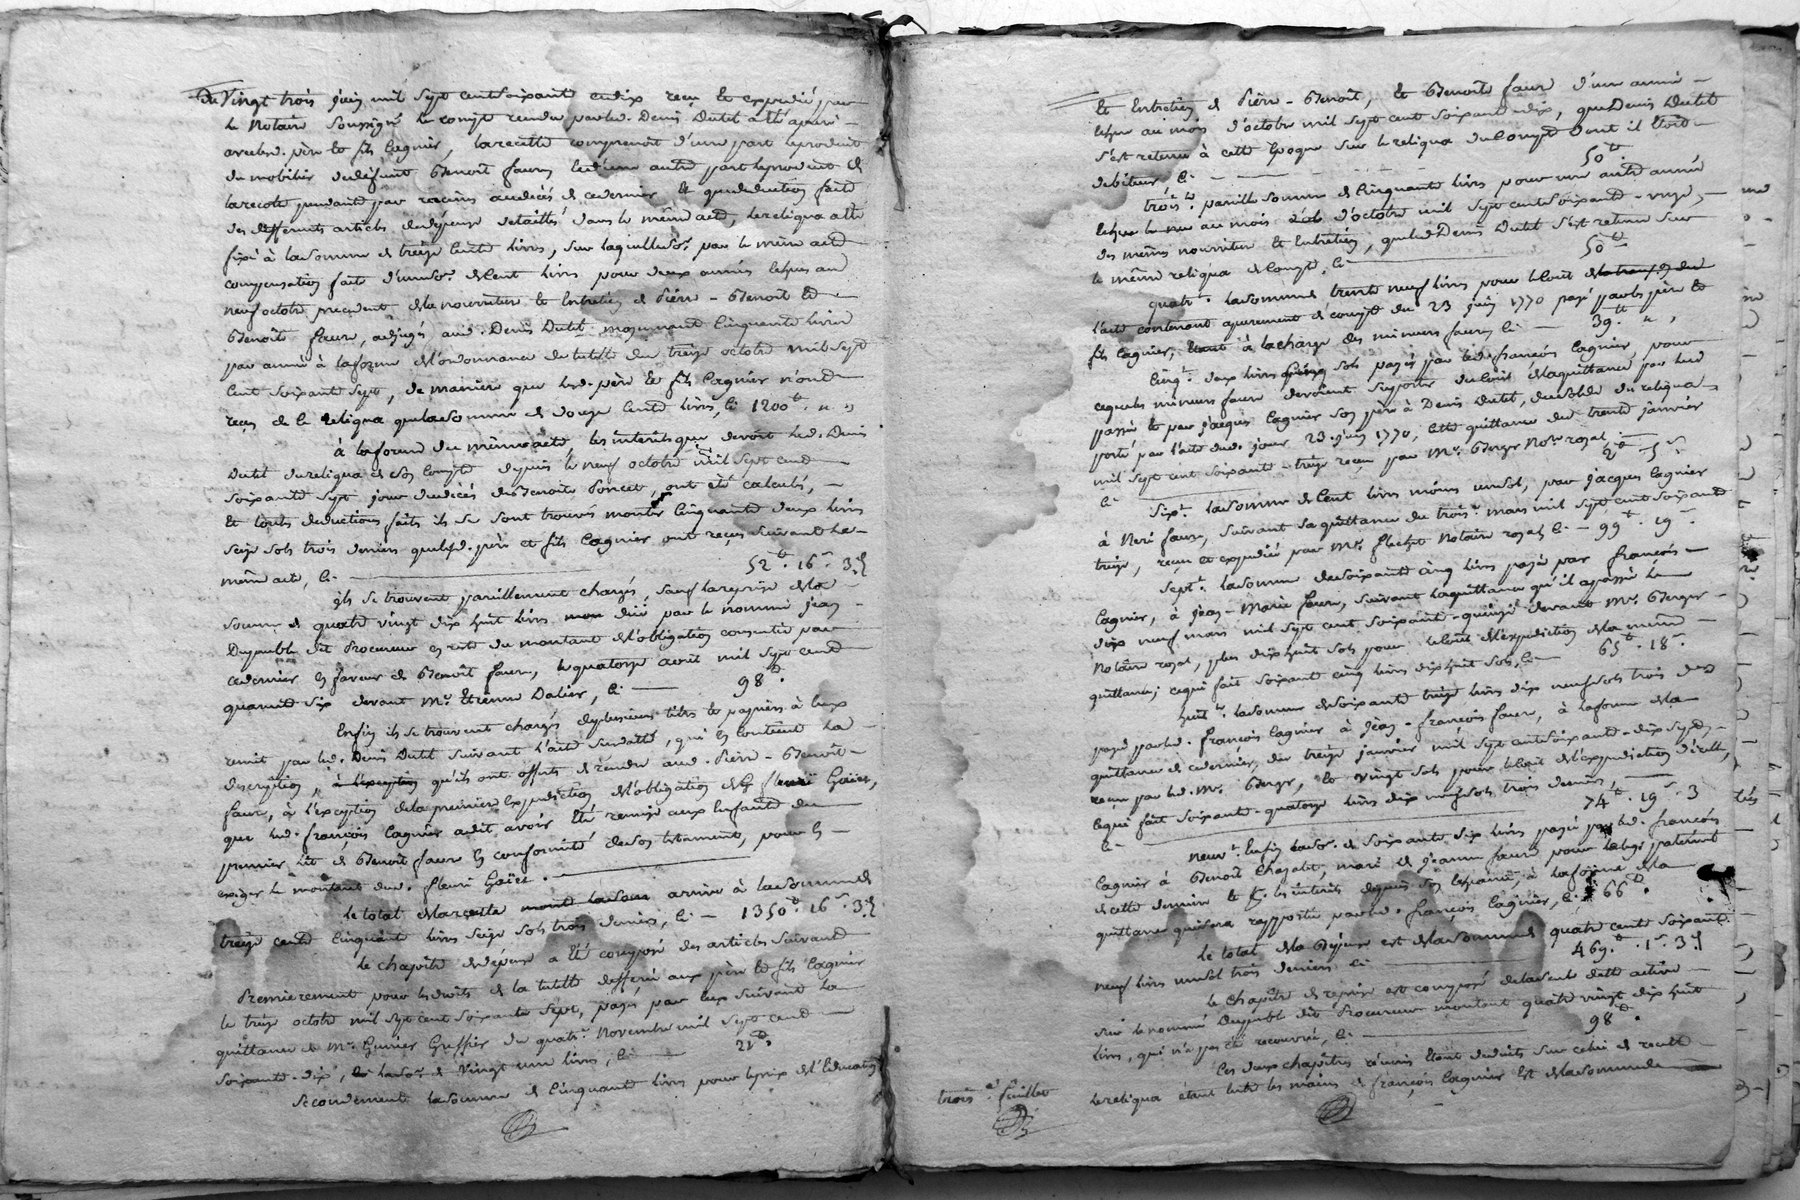 Du Vingt trois juin mil sept cent soixante eudix reçu et expedié par
le Notaire soussigné le compte rendu par led. Denis Dutel a été apuré
avec led. père et fils Cagnier, la recette comprenoit d'une part le produit
du mobilier dudefunt Benoit faure et d'une autre part le produit de
la recolte pendante par racines au décès de ce dernier et que deduction faite
des differents articles de depense detaillés dans le même acte, le reliqua a été
fixé à la somme de treize cents livres, sur laquelle so.e par le même acte
compensation faite d'une so.e de Cent livres pour deux années echues au
neuf octobre precedent de la nourriture et Entretien de Pierre-Benoit et
Benoite faure, adjugés aud. Denis Dutel moyennant Cinquante livres
par année à la forme de l'ordonnance de tutelle du treize octobre mil sept
Cent soixante sept, de maniere que lesd. père et fils Cagnier n'ont
reçu de ce reliqua que la somme de douze Cents livres, Ci 1200tt " "
à la forme du même acte, les interets que devoit led. Denis
Dutel du reliqua de son Compte depuis le neuf octobre mil sept cent
soixante sept jour du décès de Benoite Poncet, ont été calculés,
Et toutes deductions faites ils se sont trouvés monter Cinquante deux livres
seize sols trois deniers que lesd. père et fils Cagnier ont reçus suivant le
même acte, Ci 52tt. 16s. 3d
Ils se trouvent pareillement chargés, sauf la reprise de la
somme de quatre vingt dix huit livres due par le nommé jean
Dupuble dit Procureur en reste du montant de l'obligation consentie par
ce dernier en faveur de Benoit faure, le quatorze avril mil sept cent
quarante six devant Me. Etienne Dalier, Ci 98tt.
Enfin ils se trouvent chargés de plusieurs titres et papiers à eux
remis par led. Denis Dutel suivant l'acte susdatté, qui en Contient la
description, à l'exception qu'ils ont offerts de rendre aud. Pierre-Benoit
faure, à l'exception de la premiere Expedition de l'obligation de fleuri Gaiet,
que led. françois Cagnier a dit avoir été remise aux Enfants du
premier lit de Benoit faure en conformité de son testament, pour en
exiger le montant dud. fleuri Gaiet.
Le total de la recette monte la somme arrive à la somme de
treize cents Cinquante livres seize sols trois deniers, Ci 1350tt. 16s. 3d
Le chapitre de depense a été composé des articles suivants
Premierement pour les droits de la tutelle defferée aux père et fils Cagnier
le treize octobre mil sept cent soixante sept, payés par eux suivant la
quittance de Me. Greffier du quatre Novembre mil sept cent
soixante-dix, la so.e de vingt une livres, Ci 21tt.
Secondement la somme de Cinquante livres pour le prix de l'education
et Entretien de Pierre-Benoit, et Benoite faure d'une année
echue au mois d'octobre mil sept cent soixante dix, que Denis Dutel
s'est retenue à cette Epoque sur le reliqua du Compte dont il etoit
debiteur Ci 50tt.
trois.e pareille somme de Cinquante livres pour une autre année
echue au mois d'octobre mil sept cent soixante-onze,
des mêmes nourriture et Entretien, que led. Denis Dutel s'est retenue sur
le même reliqua de Compte, Ci 50tt
quatr.e la somme de trente neuf livres pour le Cout de
l'acte contenant apurement de compte du 23 juin 1770 payé par les père et
fils Cagnier, à la charge des mineurs faure, Ci 39tt " "
Cinq.e deux livres Cinq sols payés par led. françois Cagnier pour
ce que les mineurs faure devoient suporter du Cout de la quittance par lui
passée et par jacques Cagnier son père à Denis Dutel, du solde du reliqua
porté par l'acte dud. jour 23 juin 1770, cette quittance du trente janvier
mil sept cent soixante-treize reçue par Me. Berger No.re royal
Ci 2tt 5s
Six.e la somme de Cent livres moins un sol, par jacques Cagnier
à faure, suivant sa quittance du trois mars mil sept cent soixante
treize, reçue et expediée par Me. flachat Notaire royal Ci 99tt. 19s
Sept.e la somme de soixante cinq livres payée par françois
Cagnier, à jean-Marie faure, suivant la quittance qu'il a passée le
dix neuf mars mil sept cent soixante-quinze devant Me. Berger
Notaire royal, plus dix huit sols pour le Cout de l'expedition de la même
quittance; ce qui fait soixante cinq livres dix huit sols, Ci 65tt. 18s
huit.e la somme de soixante treize livres dix neuf sols trois den
payée par led. françois Cagnier à jean-françois faure, à la forme de la
quittance de ce dernier, du treize janvier mil sept cent soixante-dix sept,
reçue par led. Me. Berger, et vingt sols pour le Cout de l'expedition d'icelle,
ce qui fait soixante-quatorze livres dix neuf sols trois deniers,
Ci 74tt. 19s. 3
neuv.e Enfin la so.e de soixante six livres payée par led. françois
Cagnier à Benoit Chazalet, mari de jeanne faure pour la legs paternel
de cette derniere et les interets depuis son Echeance, à la forme de la
quittance qui sera rapportée par led. françois Cagnier, Ci 66tt.
Le total de la depense est de la somme de quatre cents soixante
neuf livres un sol trois deniers Ci 469tt. 1s. 3d
Le Chapitre de reprise est composé de la seule dette active
sur le nommé Dupuble dit Procureur montant quatre vingt dix huit
livres, qui n'a pas été recouvrée, Ci 98tt.
Ces deux chapitres reunis étant deduits sur celui de recette
le reliqua étant entre les mains de françois Cagnier est de la somme de
trois.e feuillet